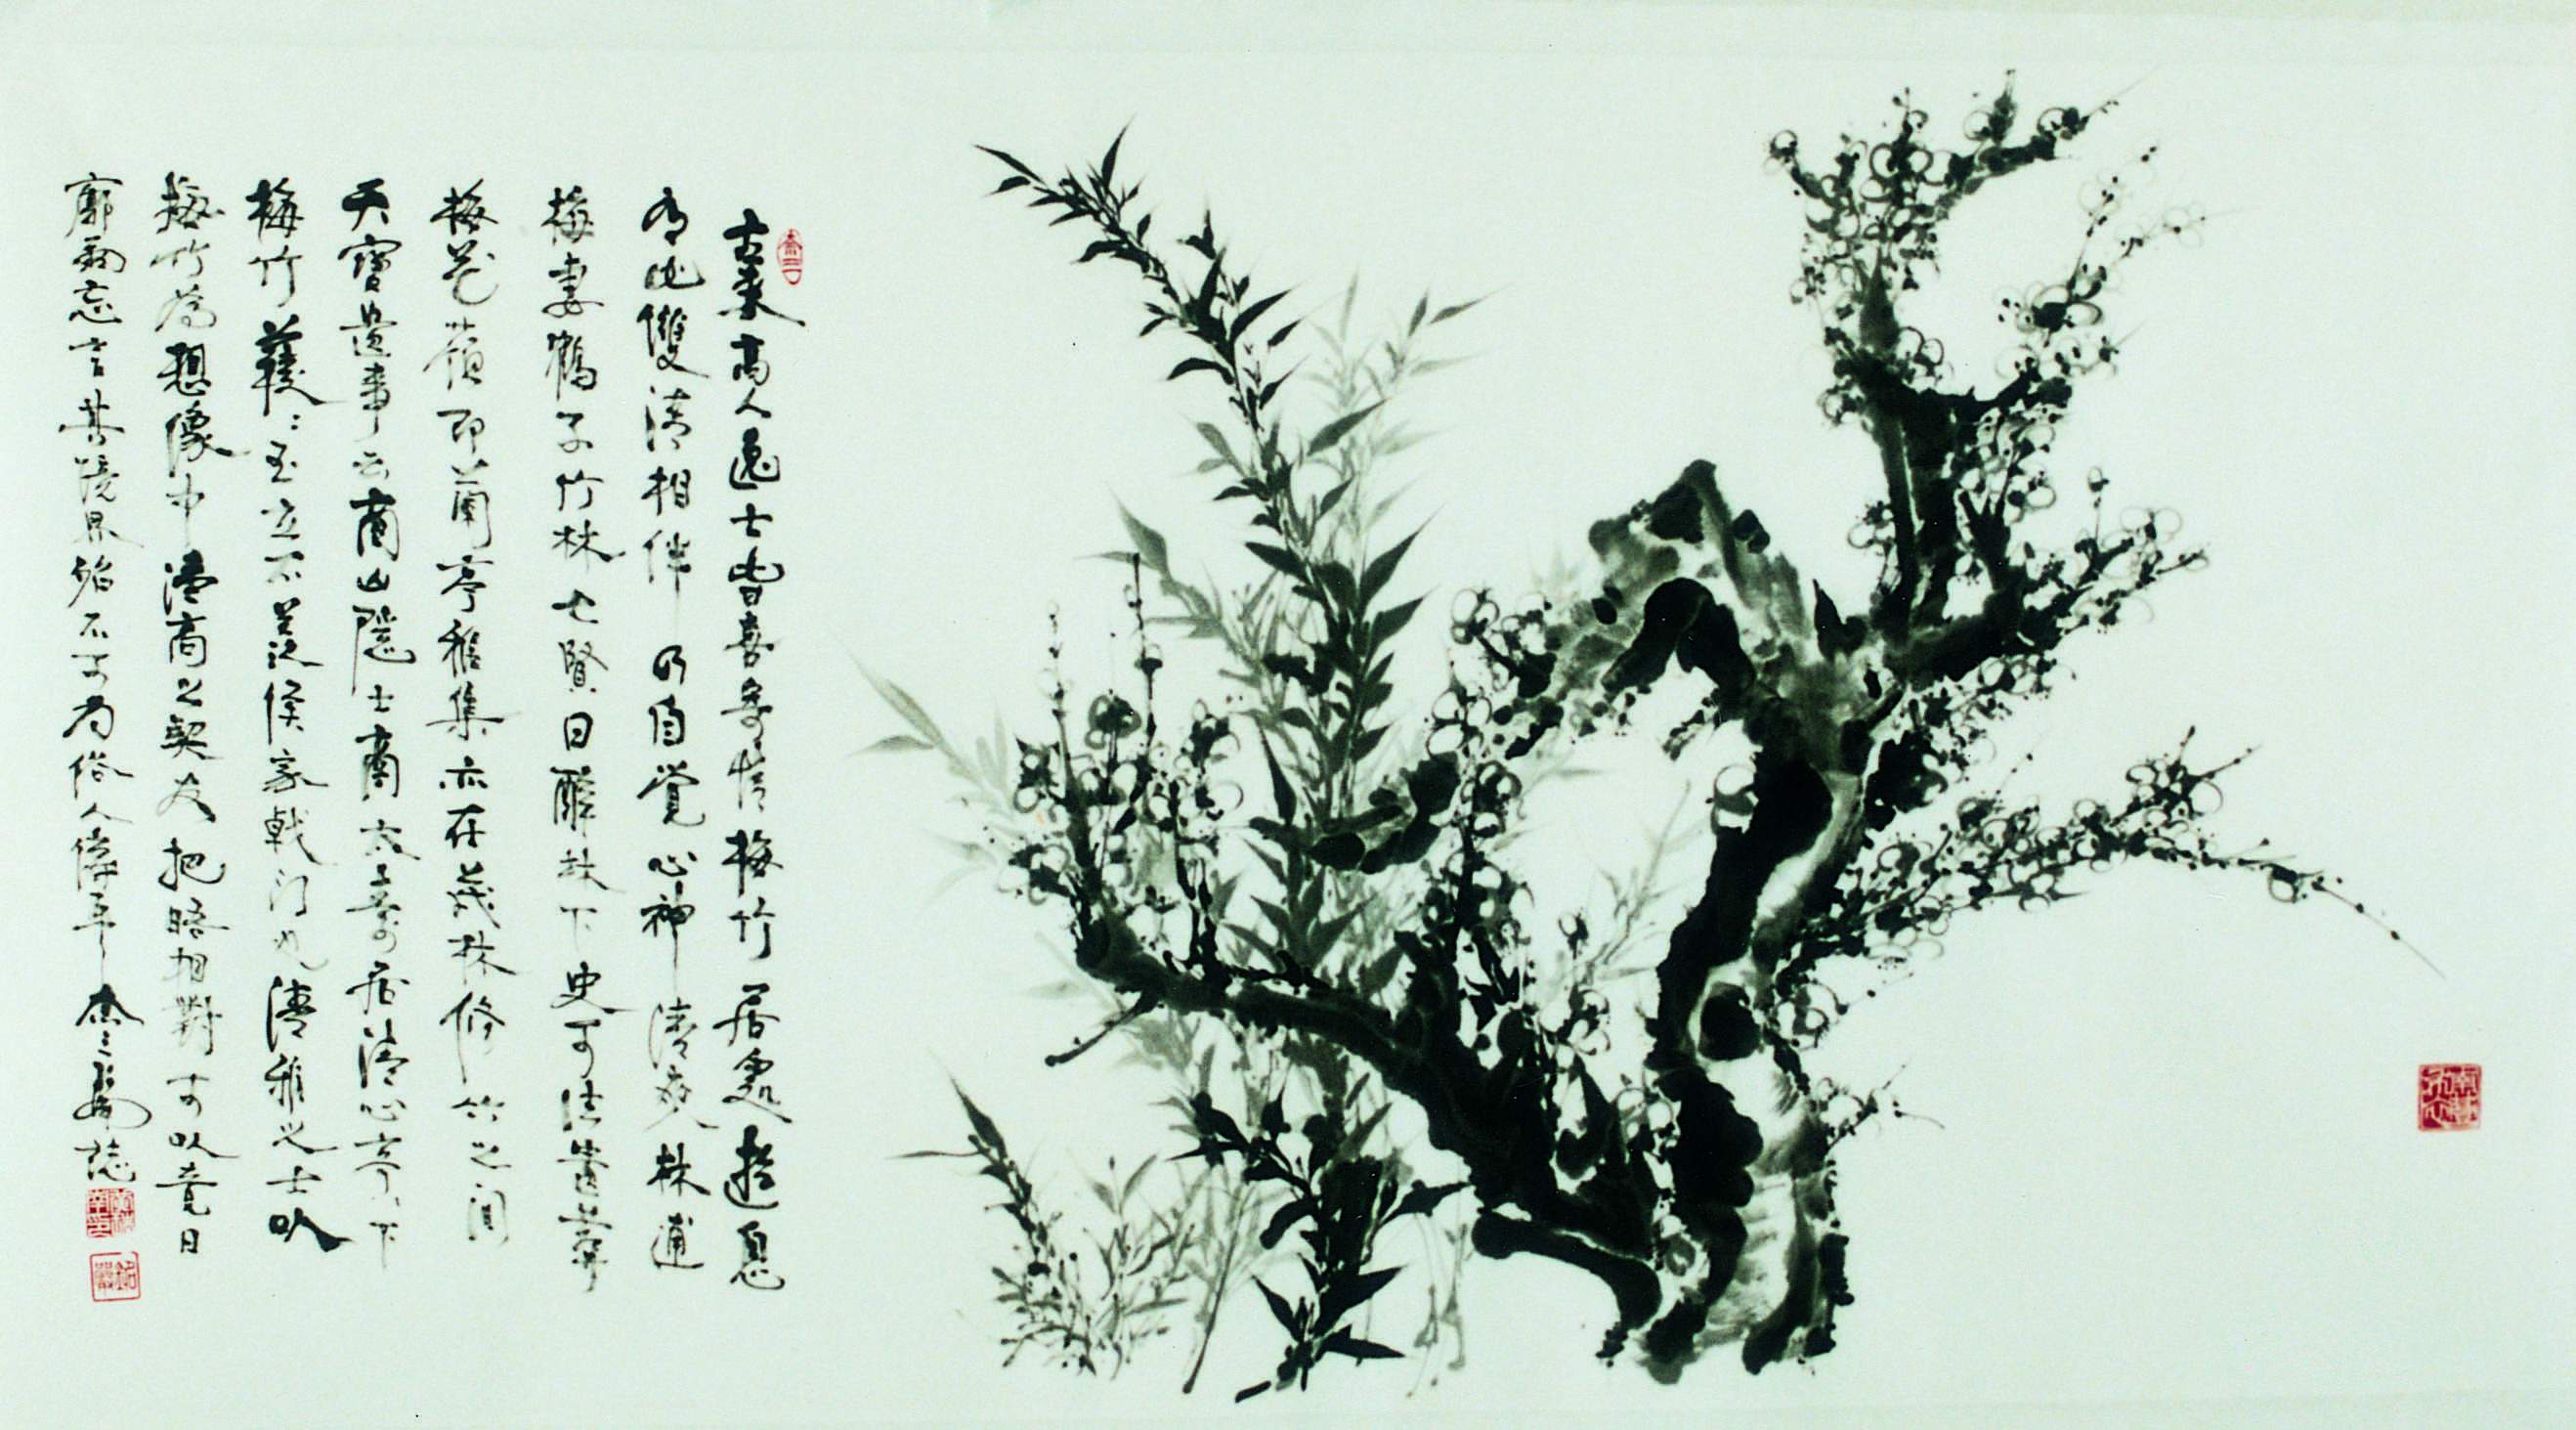 古來高人逸士皆喜寄情梅竹居處遊息
有此雙清相伴乃自覺心神清爽林逋
梅妻鶴子竹林七賢日醉林下史可法
梅花嶺即蘭亭雅集亦在茂林修竹之間
天寶遺事云商山隱士高太素居清心亭下
梅竹森玉立不羨侯家戟門也清雅之士以
梅竹為想像中清高之契友把晤相對可以竟日
忘言其境界殆不可為俗人儔耳 誌